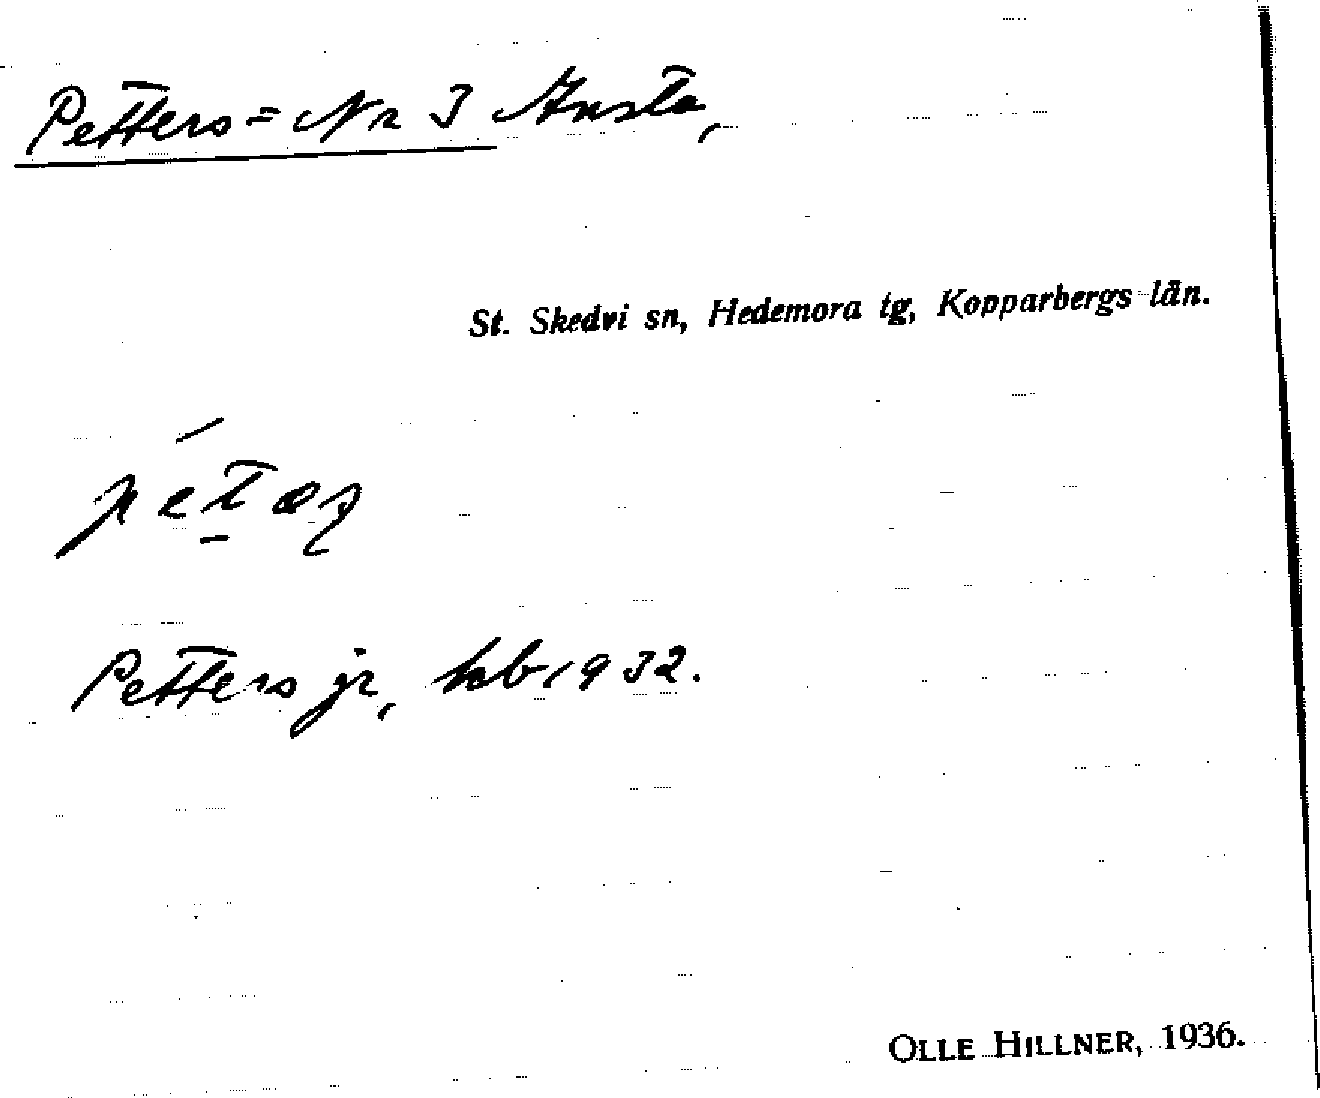 Petters = Nr 3 Ansta,
St. Skedvi sn, Hedemora tg, Kopparbergs län.
Petters jr, hb 1932.
OLLE HILLNER, 1936.